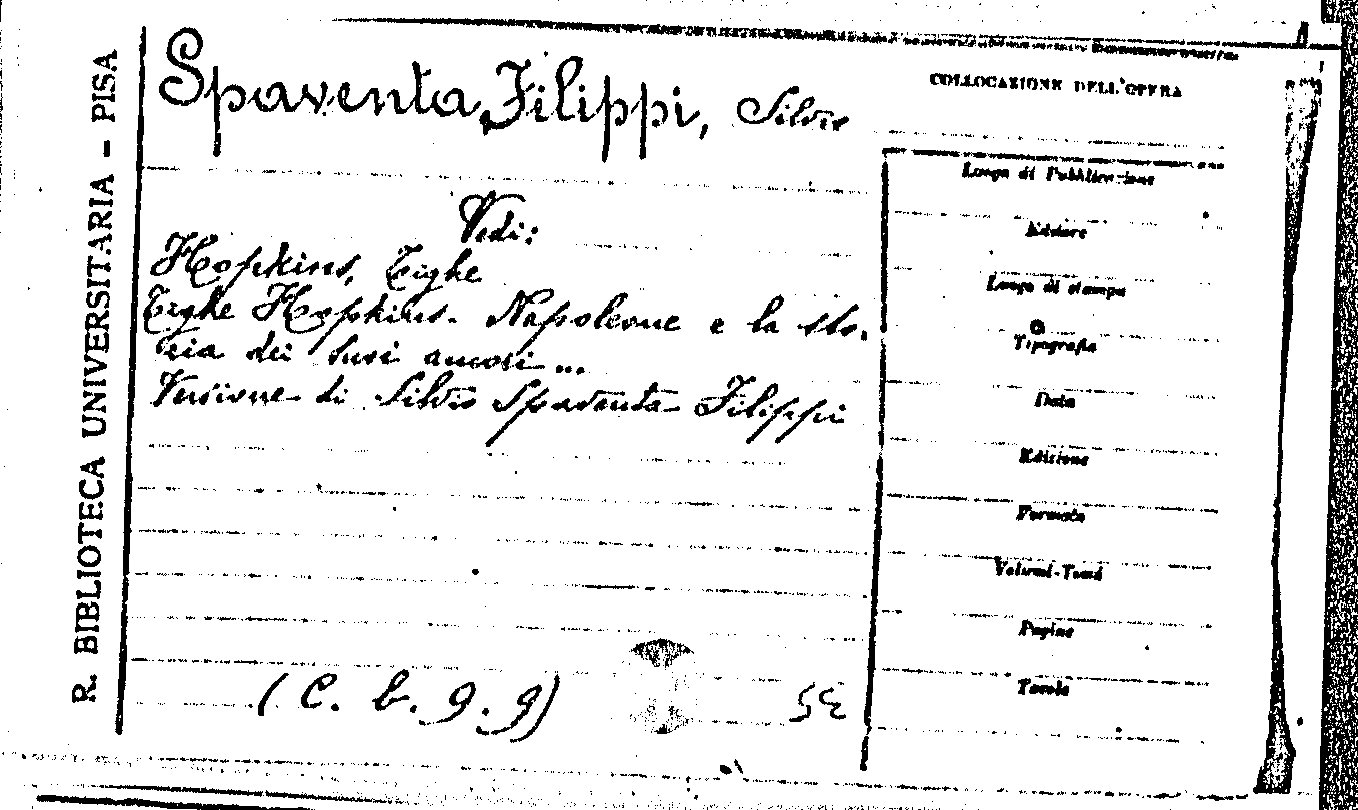 R. BIBLIOTECA UNIVERSITARIA - PISA
Spaventa, Filippi, Silvio
Vedi:
Hopkins, Tighe
Tighe Hopkins. Napoleone e la sto.
ria dei suoi amori...
Versione di Silvio Spaventa Filippi
(C. b. 9. 9)
COLLOCAZIONE DELL'OPERA
Luogo di Pubblicazione
Editore
Luogo di stampa
Tipografia
Data
Edizione
Formato
Volumi-Tomi
Pagine
Tavole